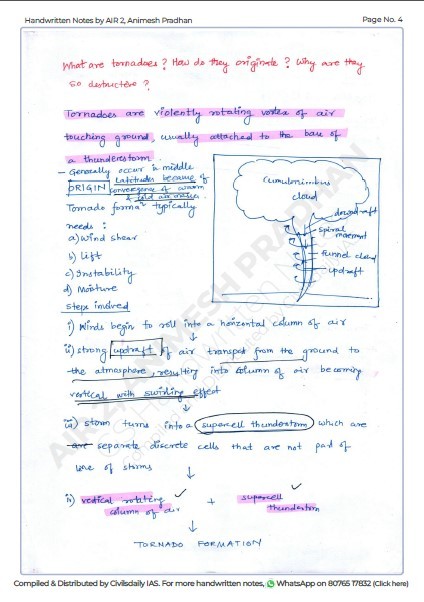 Handwritten Notes by AIR 2, Animesh Pradhan
Page No. 4
What are tornadoes? How do they originate? Why are they
so destructive?
Tornadoes are violently rotating vortex of air
touching ground, usually attached to the base of
a thunderstorm.
– Generally occur in middle
latitudes because of
convergence of warm
& cold air masses
ORIGIN
Tornado formaⁿ typically
needs:
a) Wind shear
b) Lift
c) Instability
d) Moisture
Cumulonimbus
cloud
downdraft
spiral
movement
funnel cloud
updraft
Steps involved
i) Winds begin to roll into a horizontal column of air
↓
ii) strong updraft of air transpot from the ground to
the atmosphere, resulting into column of air becoming
vertical with swirling effect
↓
iii) storm turns into a supercell thunderstorm which are
are separate discrete cells that are not part of
line of storms
↓
iv) vertical rotating + supercell
column of air thunderstorm
↓
TORNADO FORMATION
AIR 2, ANIMESH PRADHAN
Compiled & Distributed by Civilsdaily IAS. For more handwritten notes, WhatsApp on 80765 17832 (Click here)